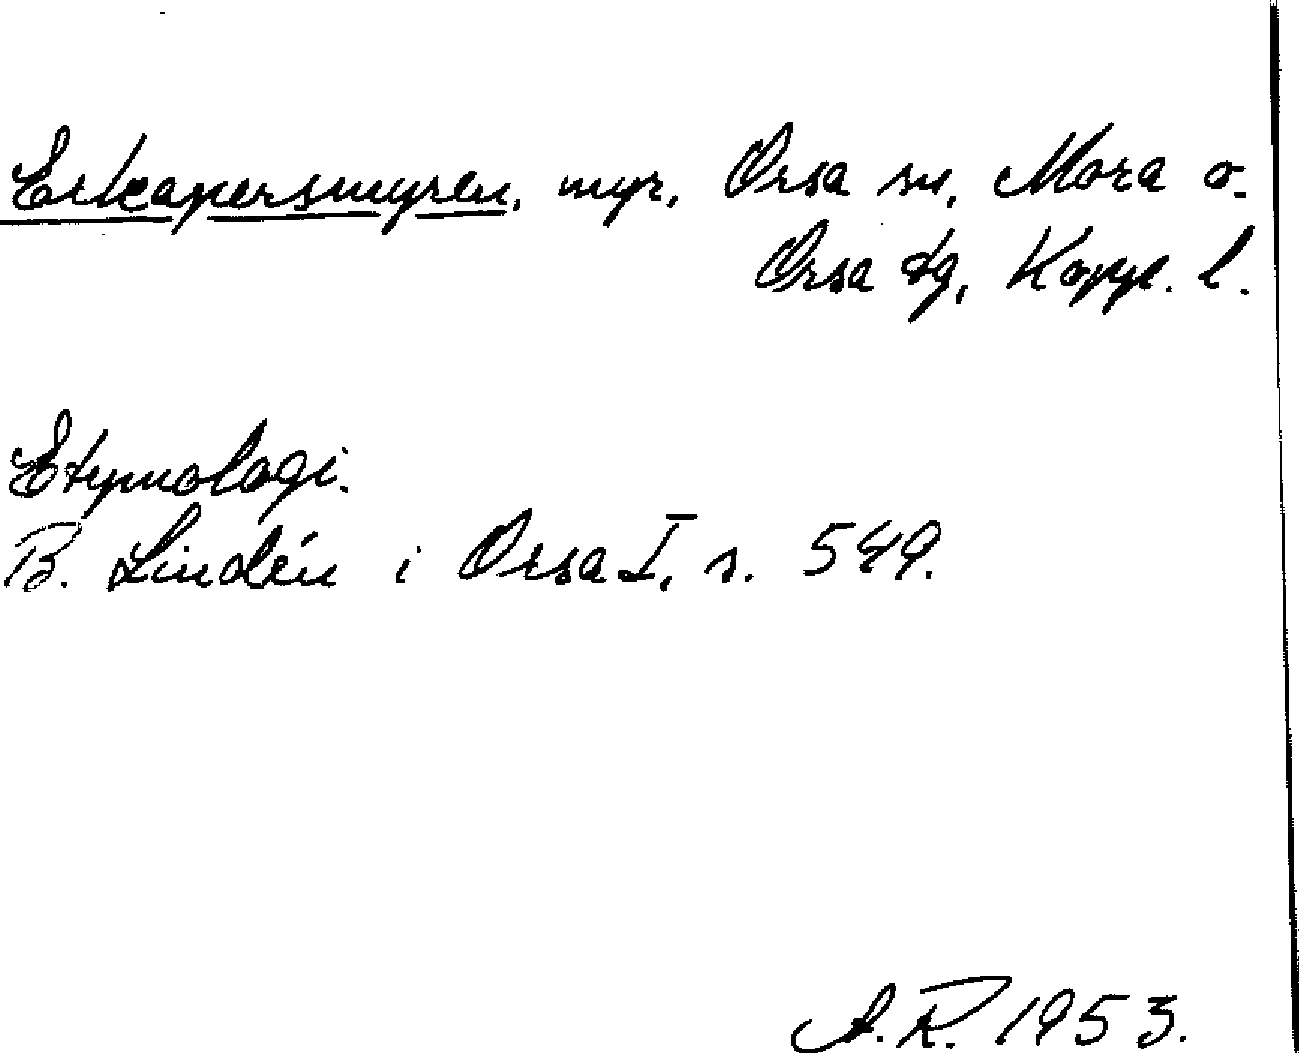 Erkapersmyren, myr, Orsa sn, Mora o.
Orsa tg, Kopp. l.
Etymologi.
B. Lindén i Orsa I, s. 549.
A.R. 1953.